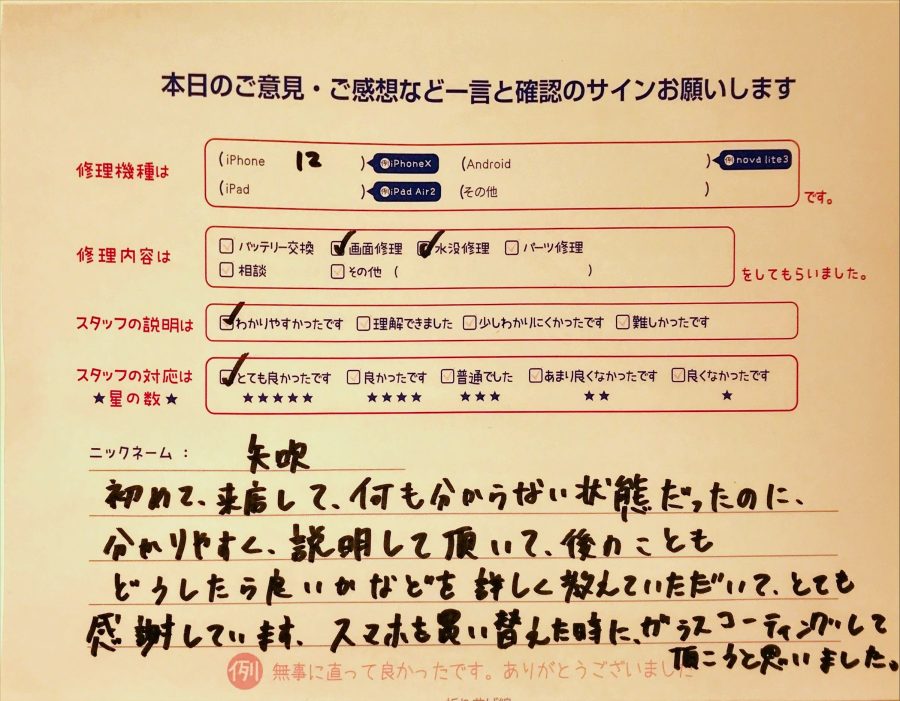 本日のご意見・ご感想など一言と確認のサインお願いします
修理機種は
(iPhone 12 ) 例iPhoneX (Android ) 例nova lite3
(iPad ) 例iPad Air2 (その他 ) です。
修理内容は
バッテリー交換 画面修理 水没修理 パーツ修理
相談 その他 ( ) をしてもらいました。
スタッフの説明は
わかりやすかったです 理解できました 少しわかりにくかったです 難しかったです
スタッフの対応は
★星の数★
とても良かったです 良かったです 普通でした あまり良くなかったです 良くなかったです
★★★★★ ★★★★ ★★★ ★★ ★
ニックネーム： 矢吹
初めて、来店して、何も分からない状態だったのに、
分かりやすく、説明して頂いて、後のことも
どうしたら良いかなどを詳しく教えていただいて、とても
感謝しています。スマホを買い替えた時に、ガラスコーティングして
頂こうと思いました。
例 無事に直って良かったです。ありがとうございました